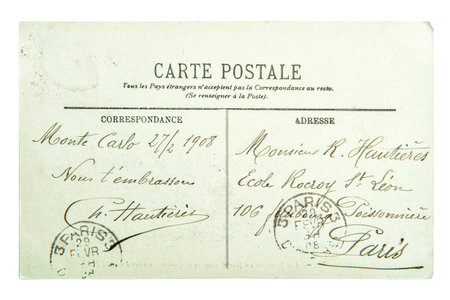 CARTE POSTALE
Tous les Pays étrangers n'acceptent pas la Correspondance au recto.
(Se renseigner à la Poste).
CORRESPONDANCE
Monte Carlo 27/2 1908
Nous t'embrassons
Ch. Hautières
ADRESSE
Monsieur R. Hautières
Ecole Rocroy St Léon
106 faubourg Poissonnière
Paris
3 PARIS 3
29
FEVR
3 PARIS 3
29
FEVR